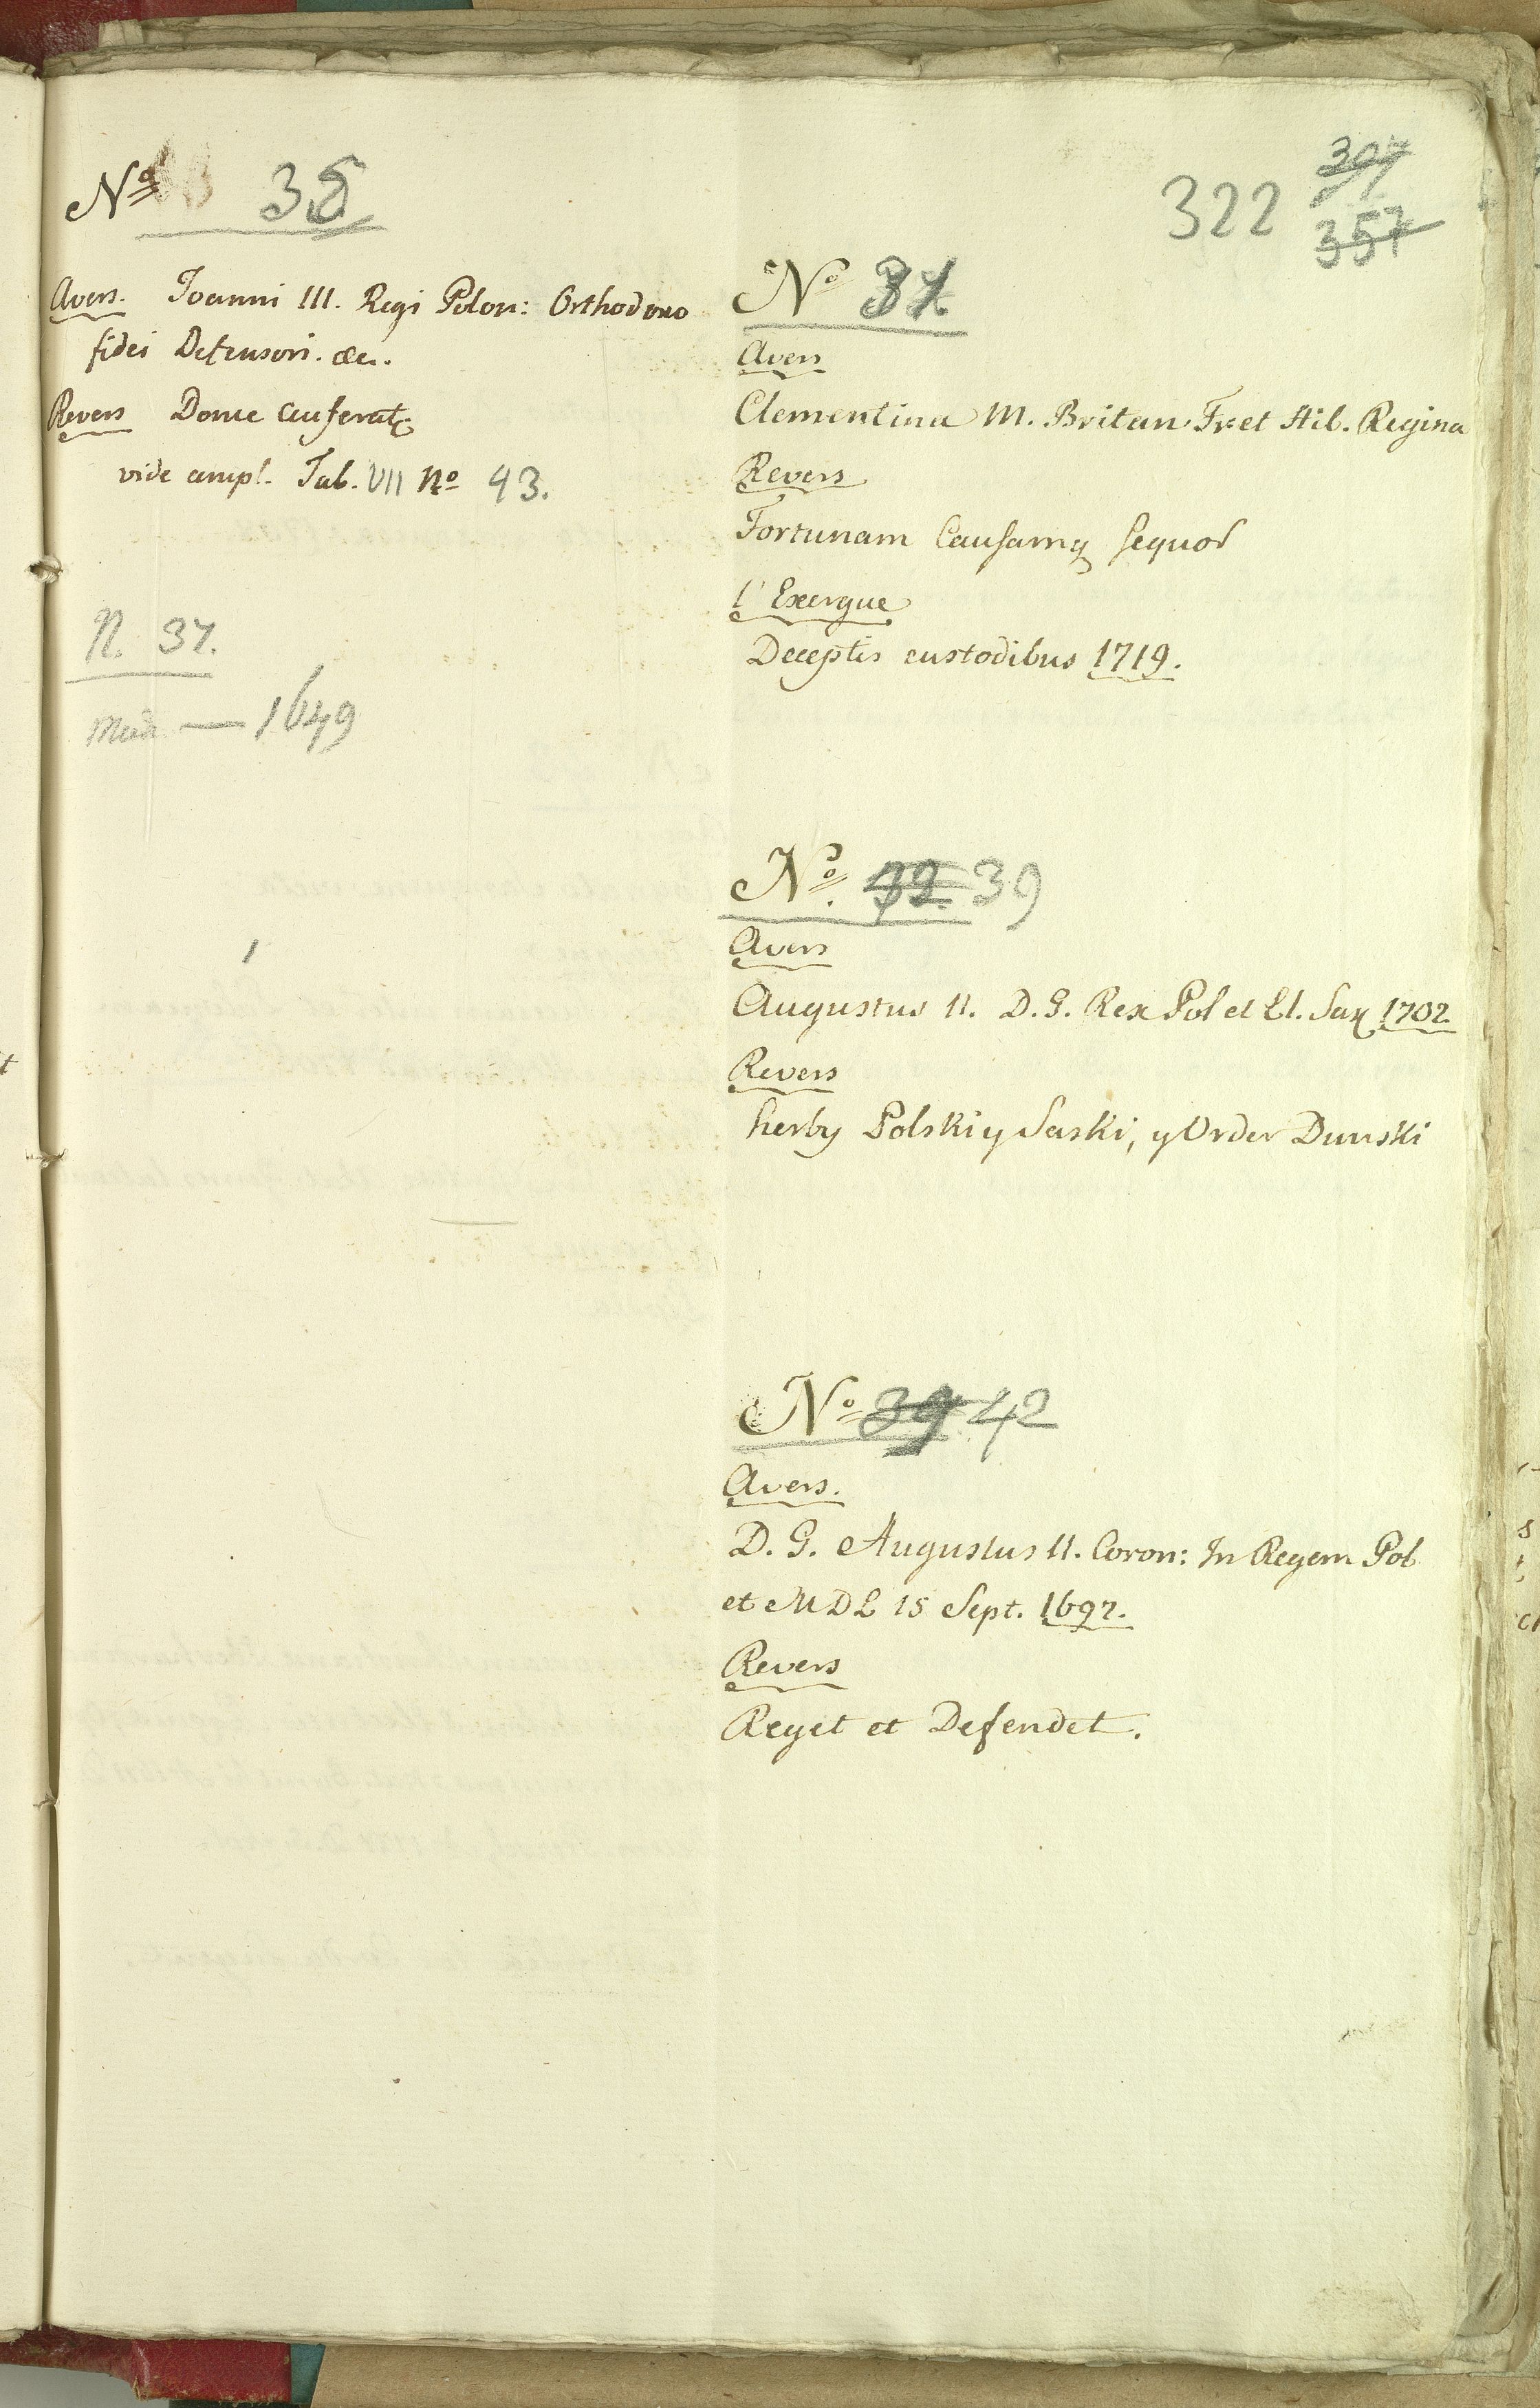 322
397
357
Nº 35
Avers. Joanni III. Regi Polon: Orthodoxo
fidei Defensori. &c.
Revers Donec auferatꝫ
vide ampl. Tab. VII Nº 43.
N. 37.
1649
Nº 37.
Avers
Clementina M. Britan. Fr. et Hib. Regina
Revers
Fortunam Causamq sequor
l'Exergue
Deceptis custodibus 1719.
Nº. 39
Avers
Augustus II. D. G. Rex Pol et El. Sax 1702.
Revers
herby Polski y Saski, y Order Dunski
Nº 39 42
Avers.
D. G. Augustus II. Coron: In Regem Pol
et MDL 15 Sept. 1697.
Revers
Reget et Defendet.